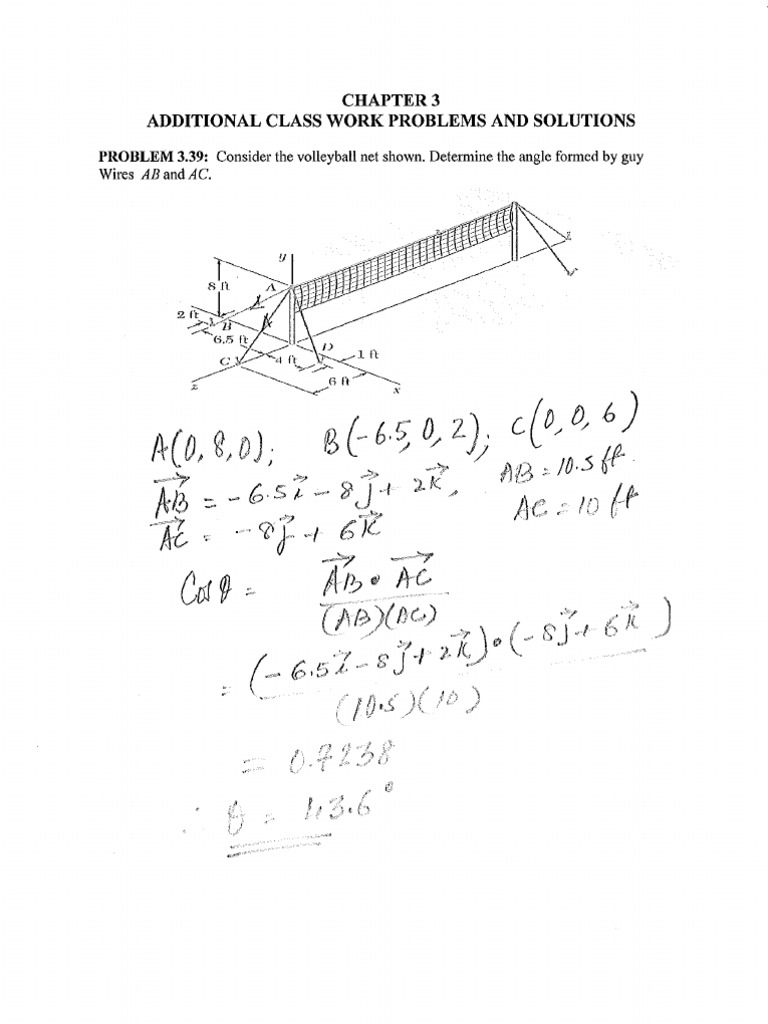 CHAPTER 3
ADDITIONAL CLASS WORK PROBLEMS AND SOLUTIONS
PROBLEM 3.39: Consider the volleyball net shown. Determine the angle formed by guy
Wires AB and AC.
y
8 ft
A
2 ft
B
6.5 ft
C
4 ft
D
1 ft
6 ft
z
x
A(0, 8, 0); B(-6.5, 0, 2); C(0, 0, 6)
AB = -6.5i - 8j + 2k, AB = 10.5 ft.
AC = -8j + 6k AC = 10 ft
Cos θ = AB • AC
(AB)(AC)
= (-6.5i - 8j + 2k) • (-8j + 6k)
(10.5)(10)
= 0.7238
∴ θ = 43.6°